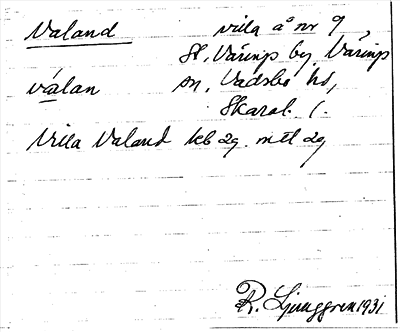 Valand villa å nr 9,
St. Väring by, Värings
vä́lan sn, Vadsbo hd,
Skarab. l.
Villa Valand kb 29. mtl 29
R. Ljunggren 1931